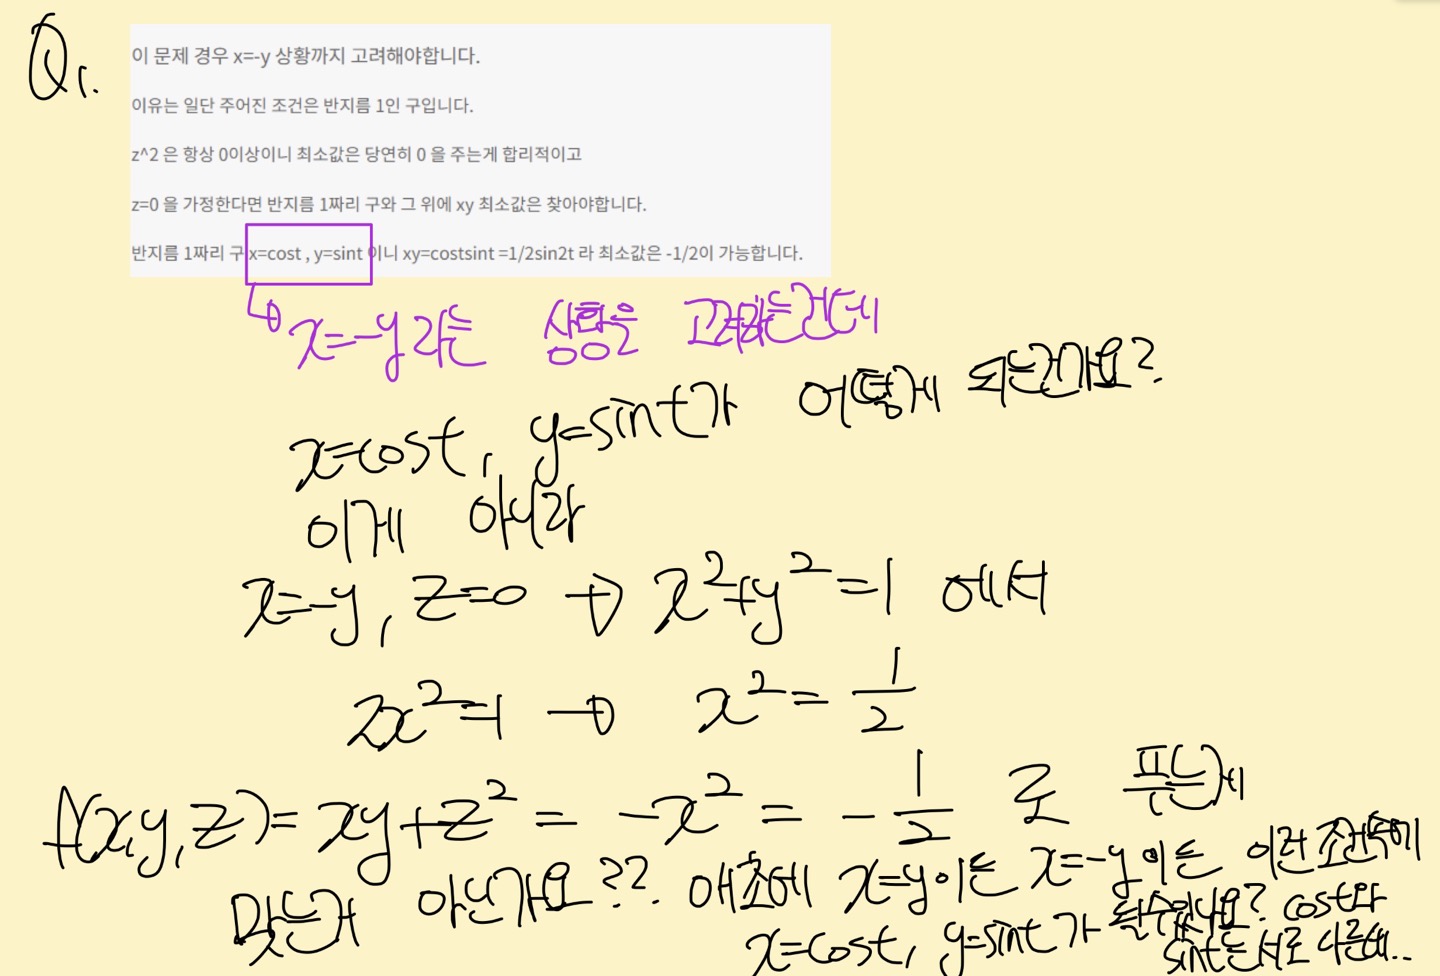 Q1.
이 문제 경우 x=-y 상황까지 고려해야합니다.
이유는 일단 주어진 조건은 반지름 1인 구입니다.
z^2 은 항상 0이상이니 최소값은 당연히 0 을 주는게 합리적이고
z=0 을 가정한다면 반지름 1짜리 구와 그 위에 xy 최소값은 찾아야합니다.
반지름 1짜리 구 x=cost , y=sint 이니 xy=costsint =1/2sin2t 라 최소값은 -1/2이 가능합니다.
↳ x=-y 라는 상황을 고려하는건데
x=cost, y=sint가 어떻게 되는건가요?
이게 아니라
x=-y, z=0 → x²+y²=1 에서
2x²=1 → x²=1/2
f(x,y,z)=xy+z²=-x²=-1/2 로 푸는게
맞는거 아닌가요?? 애초에 x=y이든 x=-y이든 이런 조건속에
x=cost, y=sint가 될수있나요? cost와
sint는 서로 다른데..